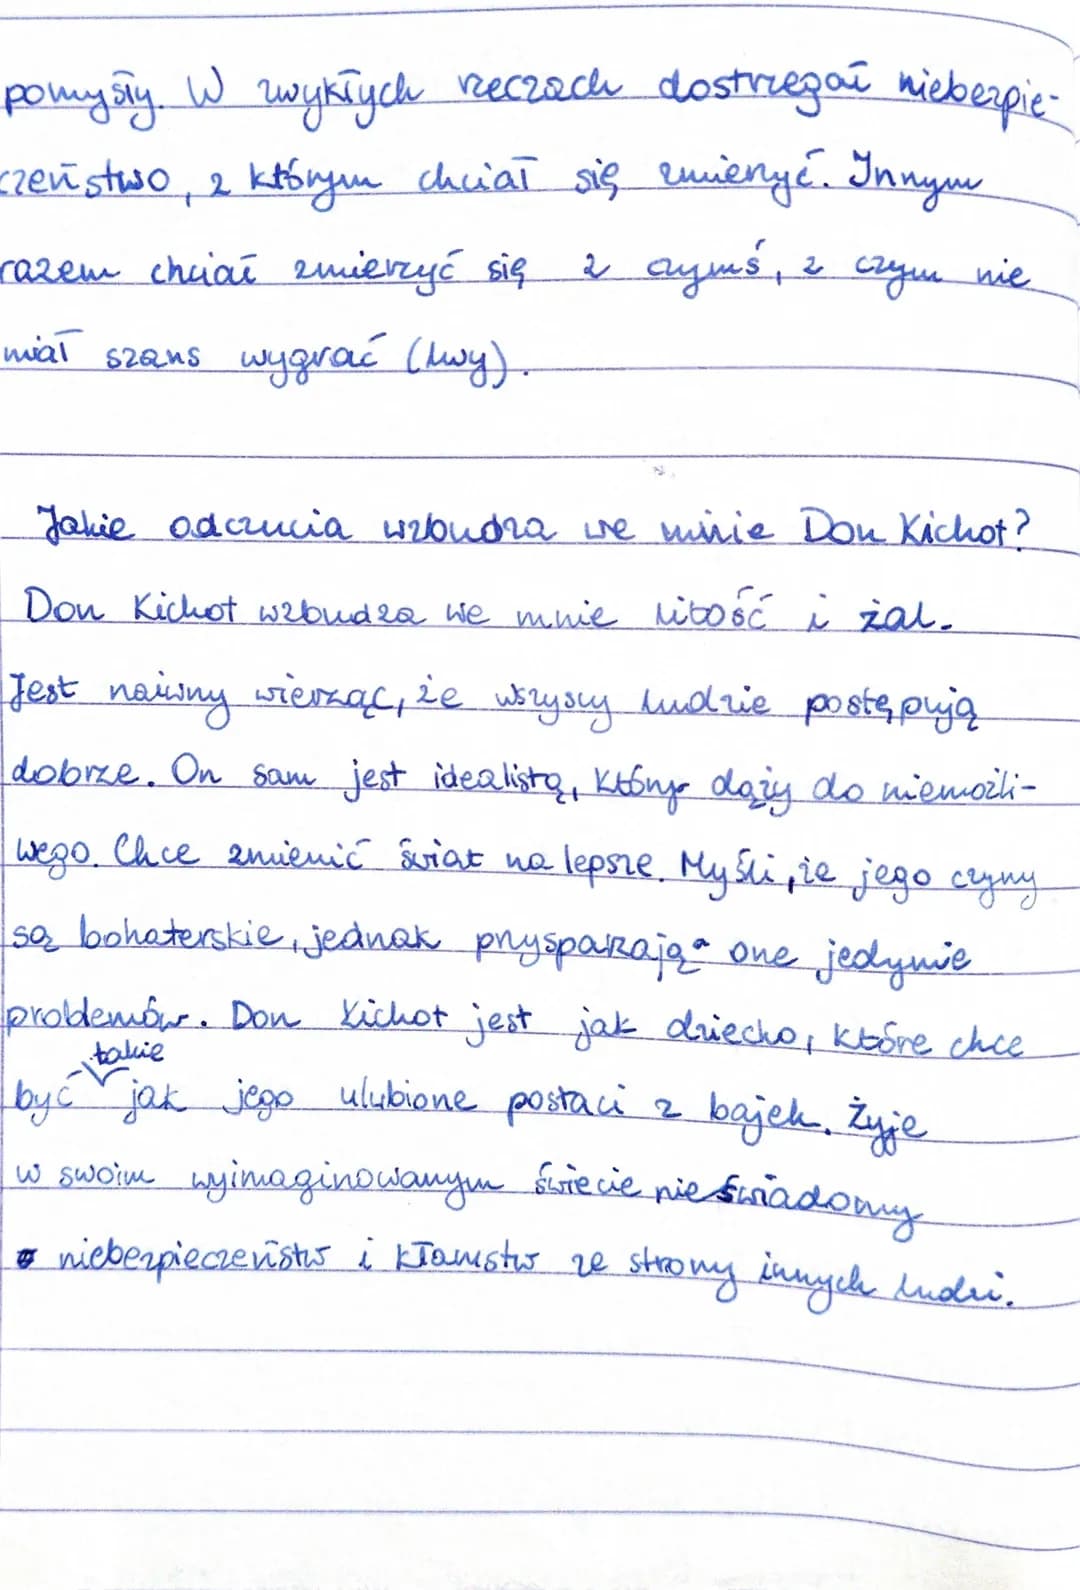 pomysły. W zwykłych rzeczach dostrzegał niebezpie-
czeństwo, z którym chciał się zmierzyć. Innym
razem chciał zmierzyć się z czymś, z czym nie
miał szans wygrać (lwy).
Jakie odczucia wzbudza we mnie Don Kichot?
Don Kichot wzbudza we mnie litość i żal.
Jest naiwny wierząc, że wszyscy ludzie postępują
dobrze. On sam jest idealistą, który dąży do niemożli-
wego. Chce zmienić świat na lepsze. Myśli, że jego czyny
są bohaterskie, jednak przysparzają one jedynie
problemów. Don Kichot jest jak dziecko, które chce
takie
być jak jego ulubione postaci z bajek. Żyje
w swoim wyimaginowanym świecie nieświadomy
niebezpieczeństw i kłamstw ze strony innych ludzi.